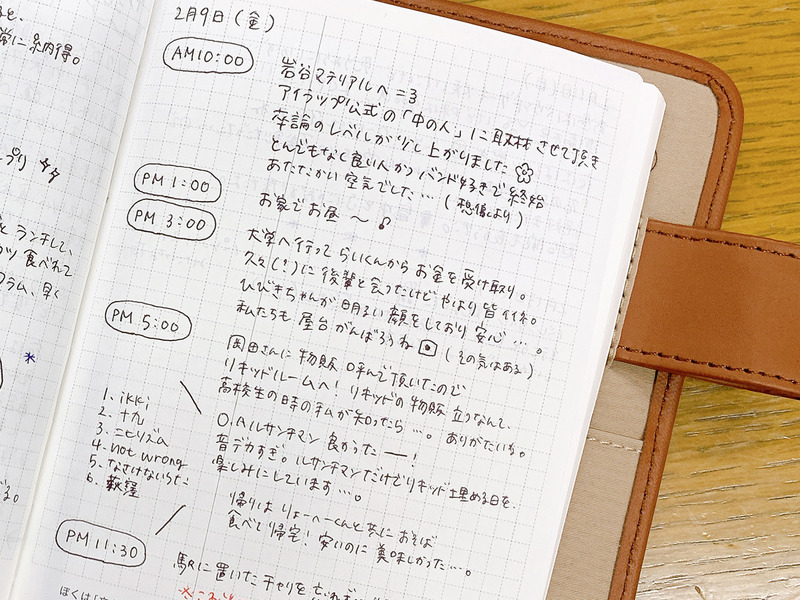 と、
常に納得。
プリ
ランチして、
食べれて
ラム、早く
2月9日(金)
AM10:00
岩谷マテリアルへ =3
アイラップ公式の「中の人」に取材させて頂き
卒論のレベルが少し上がりました
とんでもなく良い人かつバンド好きで終始
あたたかい空気でした…(想像より)
PM 1:00
お家でお昼 〜♪
PM 3:00
大学へ行って らいくんから お金を受け取り。
久々(?)に後輩と会ったけど やはり皆イイネ。
ひびきちゃんが明るい顔をしており 安心…。
私たちも 屋台がんばろうね (その気はある)
PM 5:00
岡田さんに 物販 呼んで頂いたので
リキッドルームへ! リキッドの物販 立つなんて、
高校生の時の私が知ったら…。ありがたいな。
1. ikki
2. 十九
3. ニヒリズム
4. not wrong
5. なさけないうた
6. 荻窪
O.A ルサンチマン 良かったー!
音デカすぎ。ルサンチマンだけでリキッド埋める日を、
楽しみにしています…。
帰りは りょーへーくんと共に おそば
食べて帰宅! 安いのに 美味しかった…。
PM 11:30
駅に置いたチャリを
ぼくは